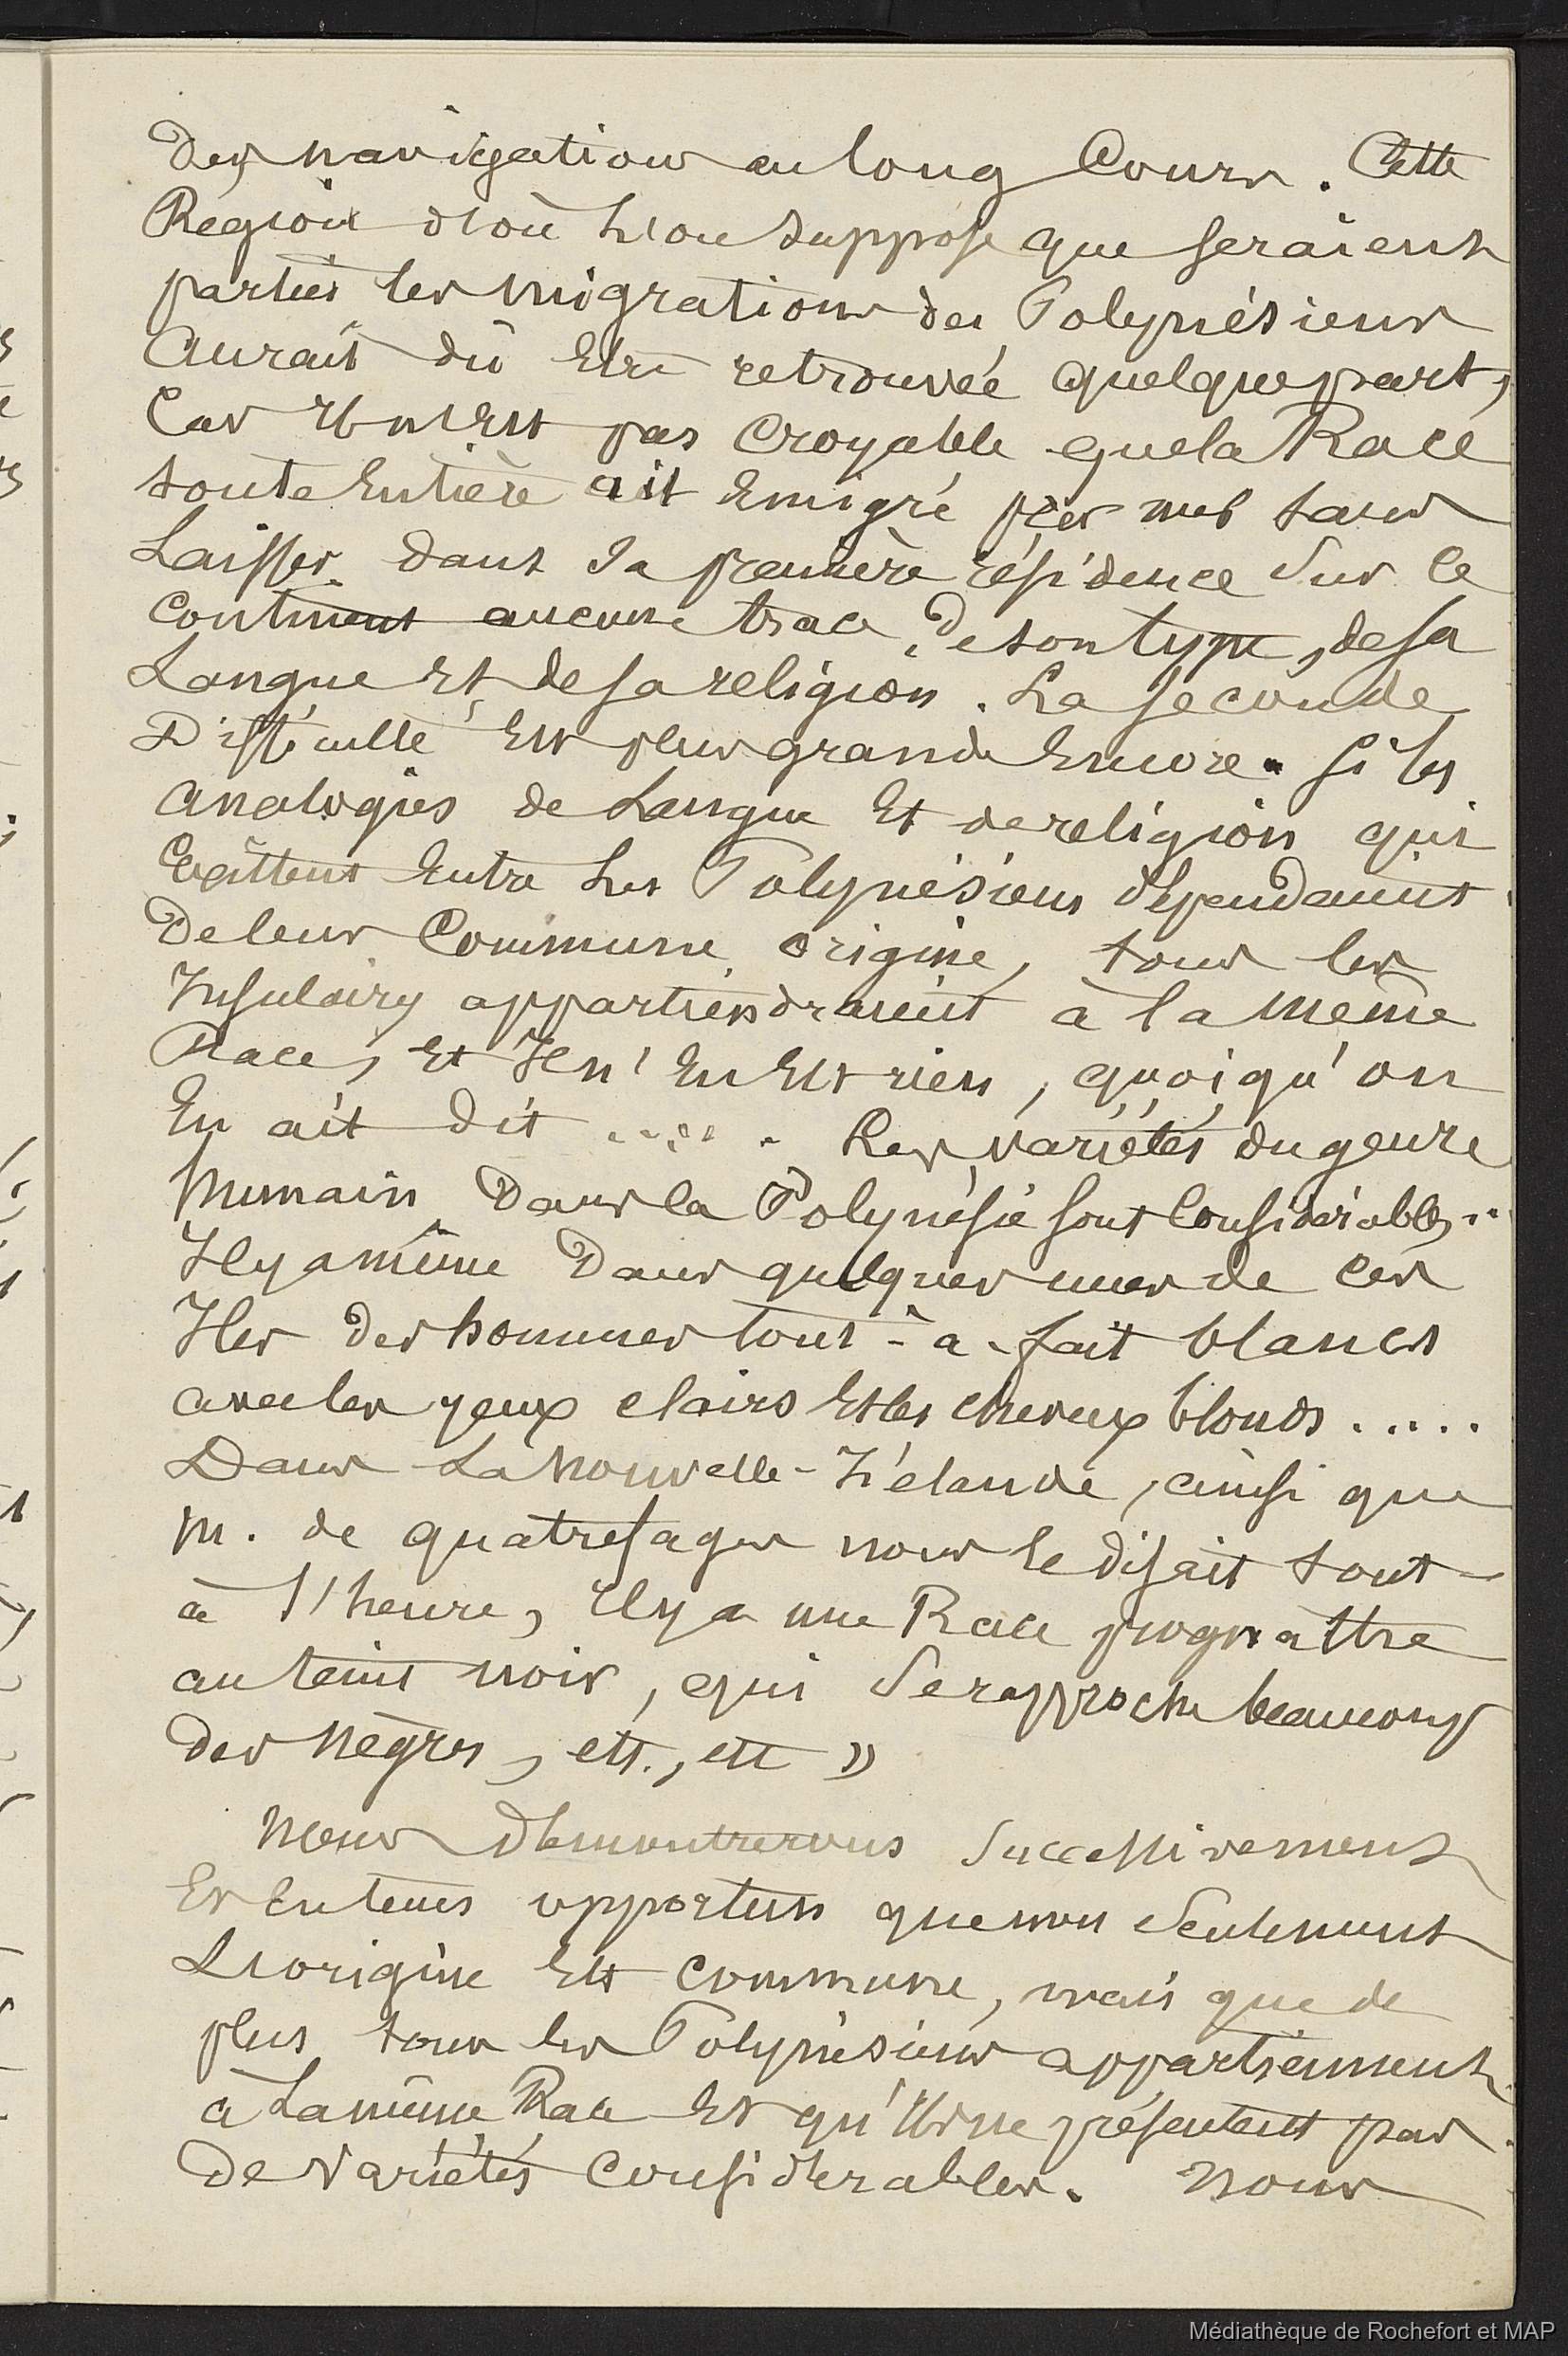 Des navigations au long Cours. Cette
Région d'où l'on suppose que seraient
parties les migrations des Polynésiens
Aurait dû être retrouvée quelque part,
Car Il n'est pas Croyable que la Race
toute Entière ait Emigré par mer sans
Laisser dans sa première résidence sur le
continent aucune trace de son type, de sa
Langue Et de sa religion. La seconde
Difficulté Est plus grande Encore. Si les
analogies de Langue Et de religion qui
Existent Entre Les Polynésiens dépendaient
De leur Commune origine, tous les
Insulaires appartiendraient à la même
Race, Et Il n'En Est rien, quoiqu'on
En ait dit ..... Les variétés du genre
humain Dans la Polynésie sont Considérables..
Il y a même Dans quelques unes de Ces
Iles Des hommes tout-à-fait blancs
avec les yeux clairs Et les cheveux blonds .....
Dans La Nouvelle-Zélande, ainsi que
M. de quatrefages nous le disait tout-
à l'heure, Il y a une Race prognattre
au teint noir, qui se rapproche beaucoup
Des Nègres, ett., ett »
Nous démontrerons successivement
Et En tems opportun que non seulement
L'origine Est commune, mais que de
plus tous les Polynésiens appartiennent
à La même Race Et qu'Ils ne présentent pas
De variétés Considérables. Nous
Médiathèque de Rochefort et MAP